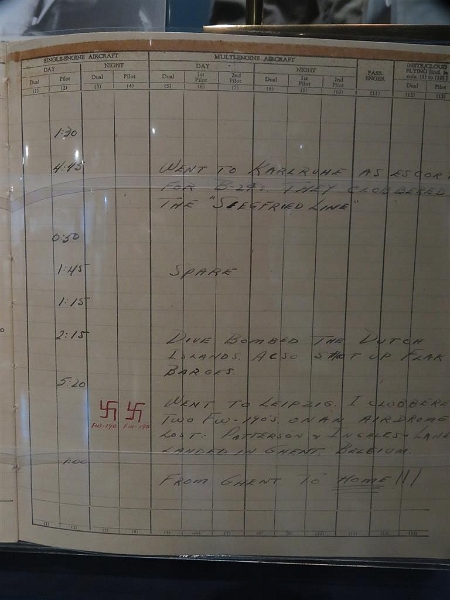 SINGLE-ENGINE AIRCRAFT MULTI-ENGINE AIRCRAFT
DAY NIGHT DAY NIGHT PASS-ENGER INSTR/CLOUD FLYING
Dual Pilot Dual Pilot Dual 1st Pilot 2nd Pilot Dual 1st Pilot 2nd Pilot Dual
(1) (2) (3) (4) (5) (6) (7) (8) (9) (10) (11) (12) (13)
1:30
4:45 WENT TO KARLRUHE AS ESCORT
FOR B-24s. THEY CLOBBERED
THE "SIEGFRIED LINE"
0:50
1:45 SPARE
1:15
2:15 DIVE BOMBED THE DUTCH
ISLANDS. ALSO SHOT UP FLAK
BARGES
5:20 WENT TO LEIPZIG. I CLOBBERE
TWO FW-190'S ON AN AIRDROME
FW-190 FW-190 LOST: PATTERSON & INGELES-LAND
LANDED IN GHENT BELGIUM.
1:00 FROM GHENT TO HOME!!!